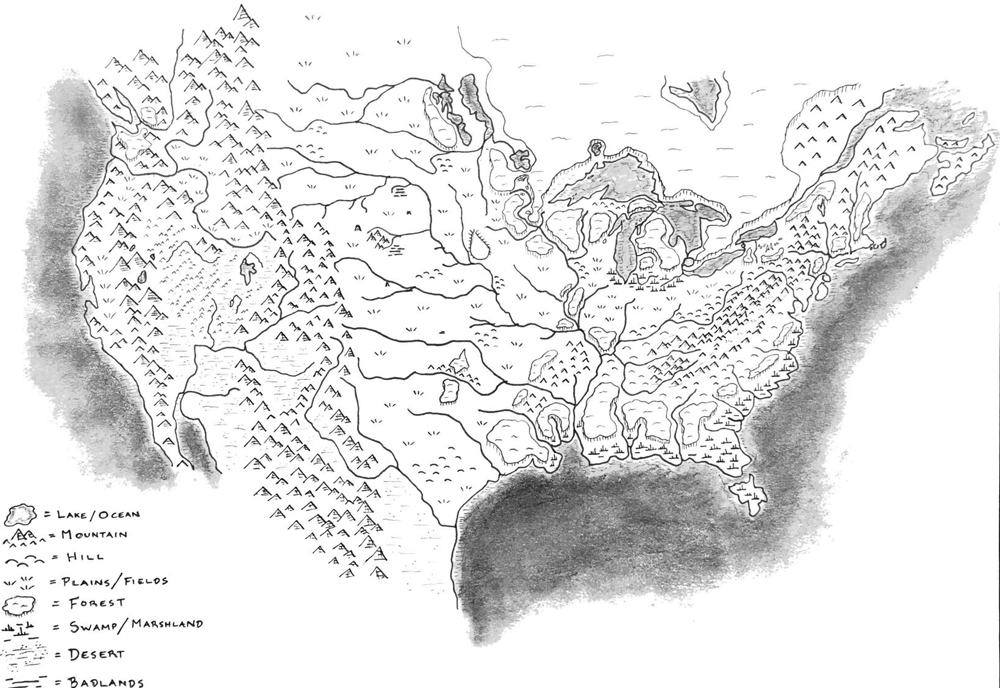 = LAKE/OCEAN
= MOUNTAIN
= HILL
= PLAINS/FIELDS
= FOREST
= SWAMP/MARSHLAND
= DESERT
= BADLANDS